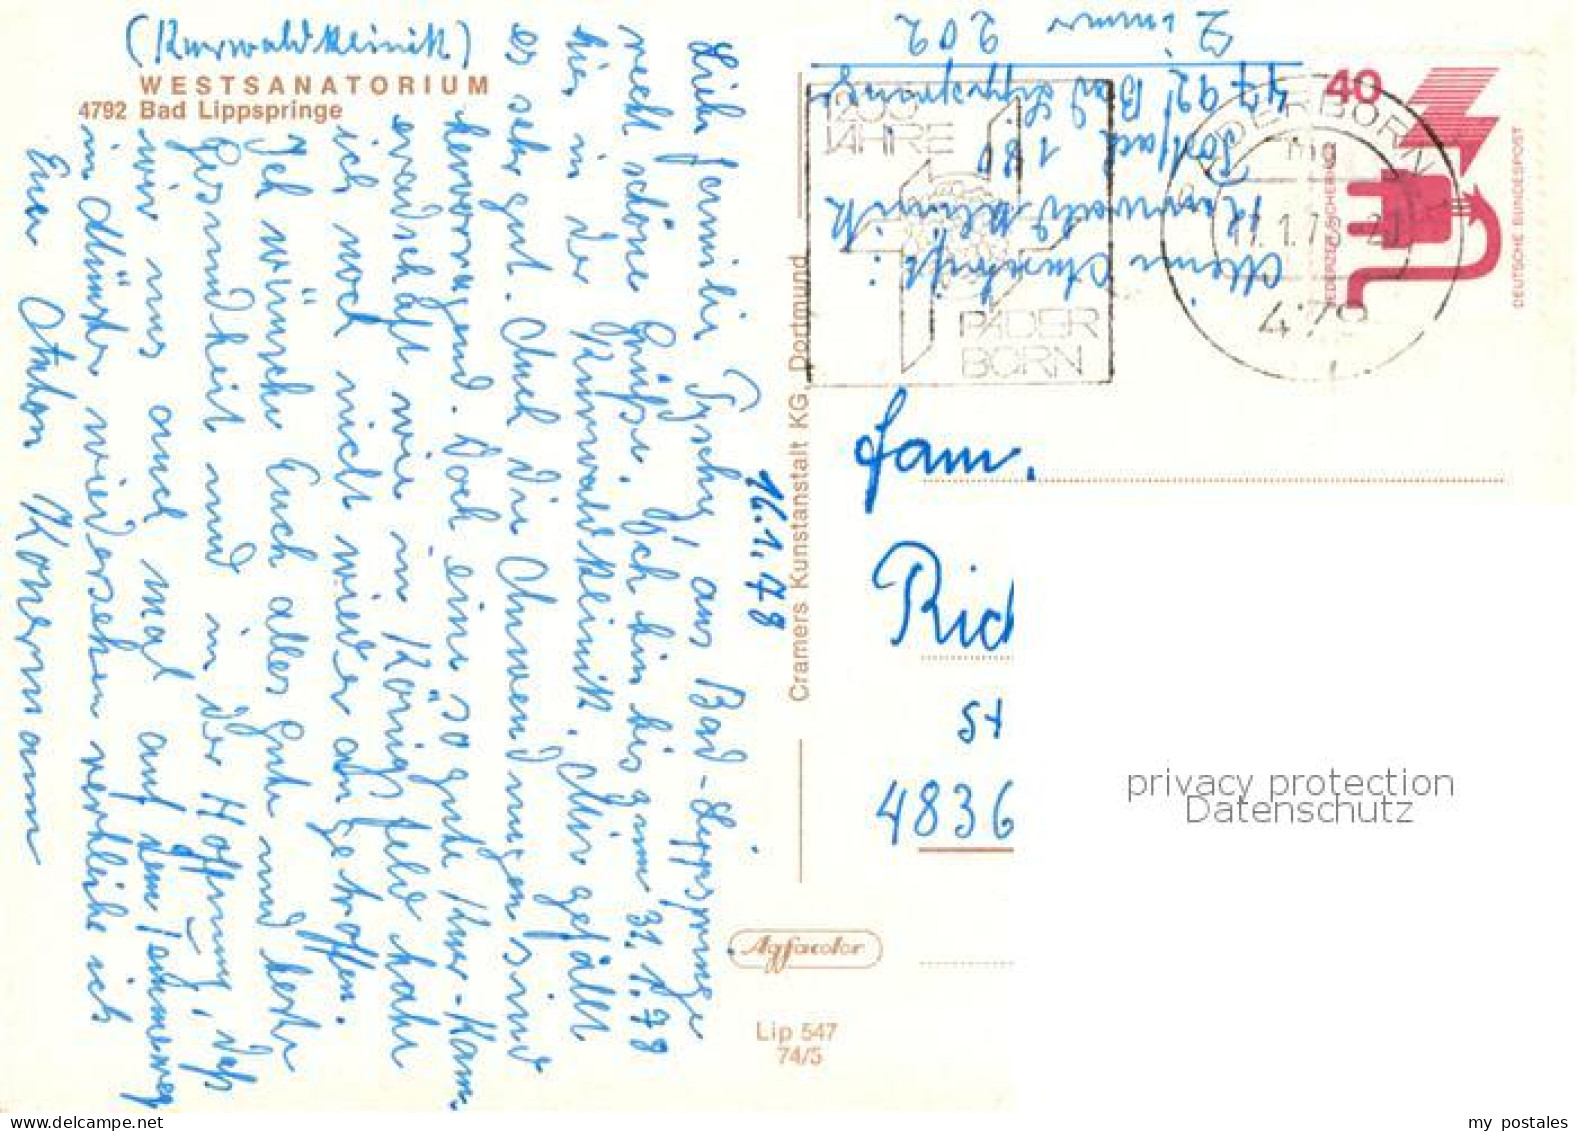 (Kurwaldklinik)
WESTSANATORIUM
4792 Bad Lippspringe
16.1.78
Liebe Familie Tyschy, aus Bad-Lippspringe
recht schöne Grüße. Ich bin bis zum 31.1.78
hier in der Kurwaldklinik. Mir gefällt
es sehr gut. Auch die Anwendungen sind
hervorragend. Doch eine so gute Kur-Kam
eradschaft wie in Königsfeld habe
ich noch nicht wieder angetroffen.
Ich wünsche Euch alles Gute und beste
Gesundheit und in der Hoffnung, daß
wir uns auch mal auf dem
in Münster wiedersehen verbleibe ich
Euer Anton Konermann
Cramers Kunstanstalt KG, Dortmund
Agfacolor
Lip 547
74/5
Meine Anschrift:
Kurwaldklinik
Postfach 180
4792 Bad Lippspringe
Zimmer 202
1200
JAHRE
PADER
BORN
PADERBORN 1
mg
17.1.78-20
479
40
JEDERZEIT SICHERHEIT
DEUTSCHE BUNDESPOST
Fam.
Rich
St
4836
privacy protection
Datenschutz
my-postcard.com
my postales